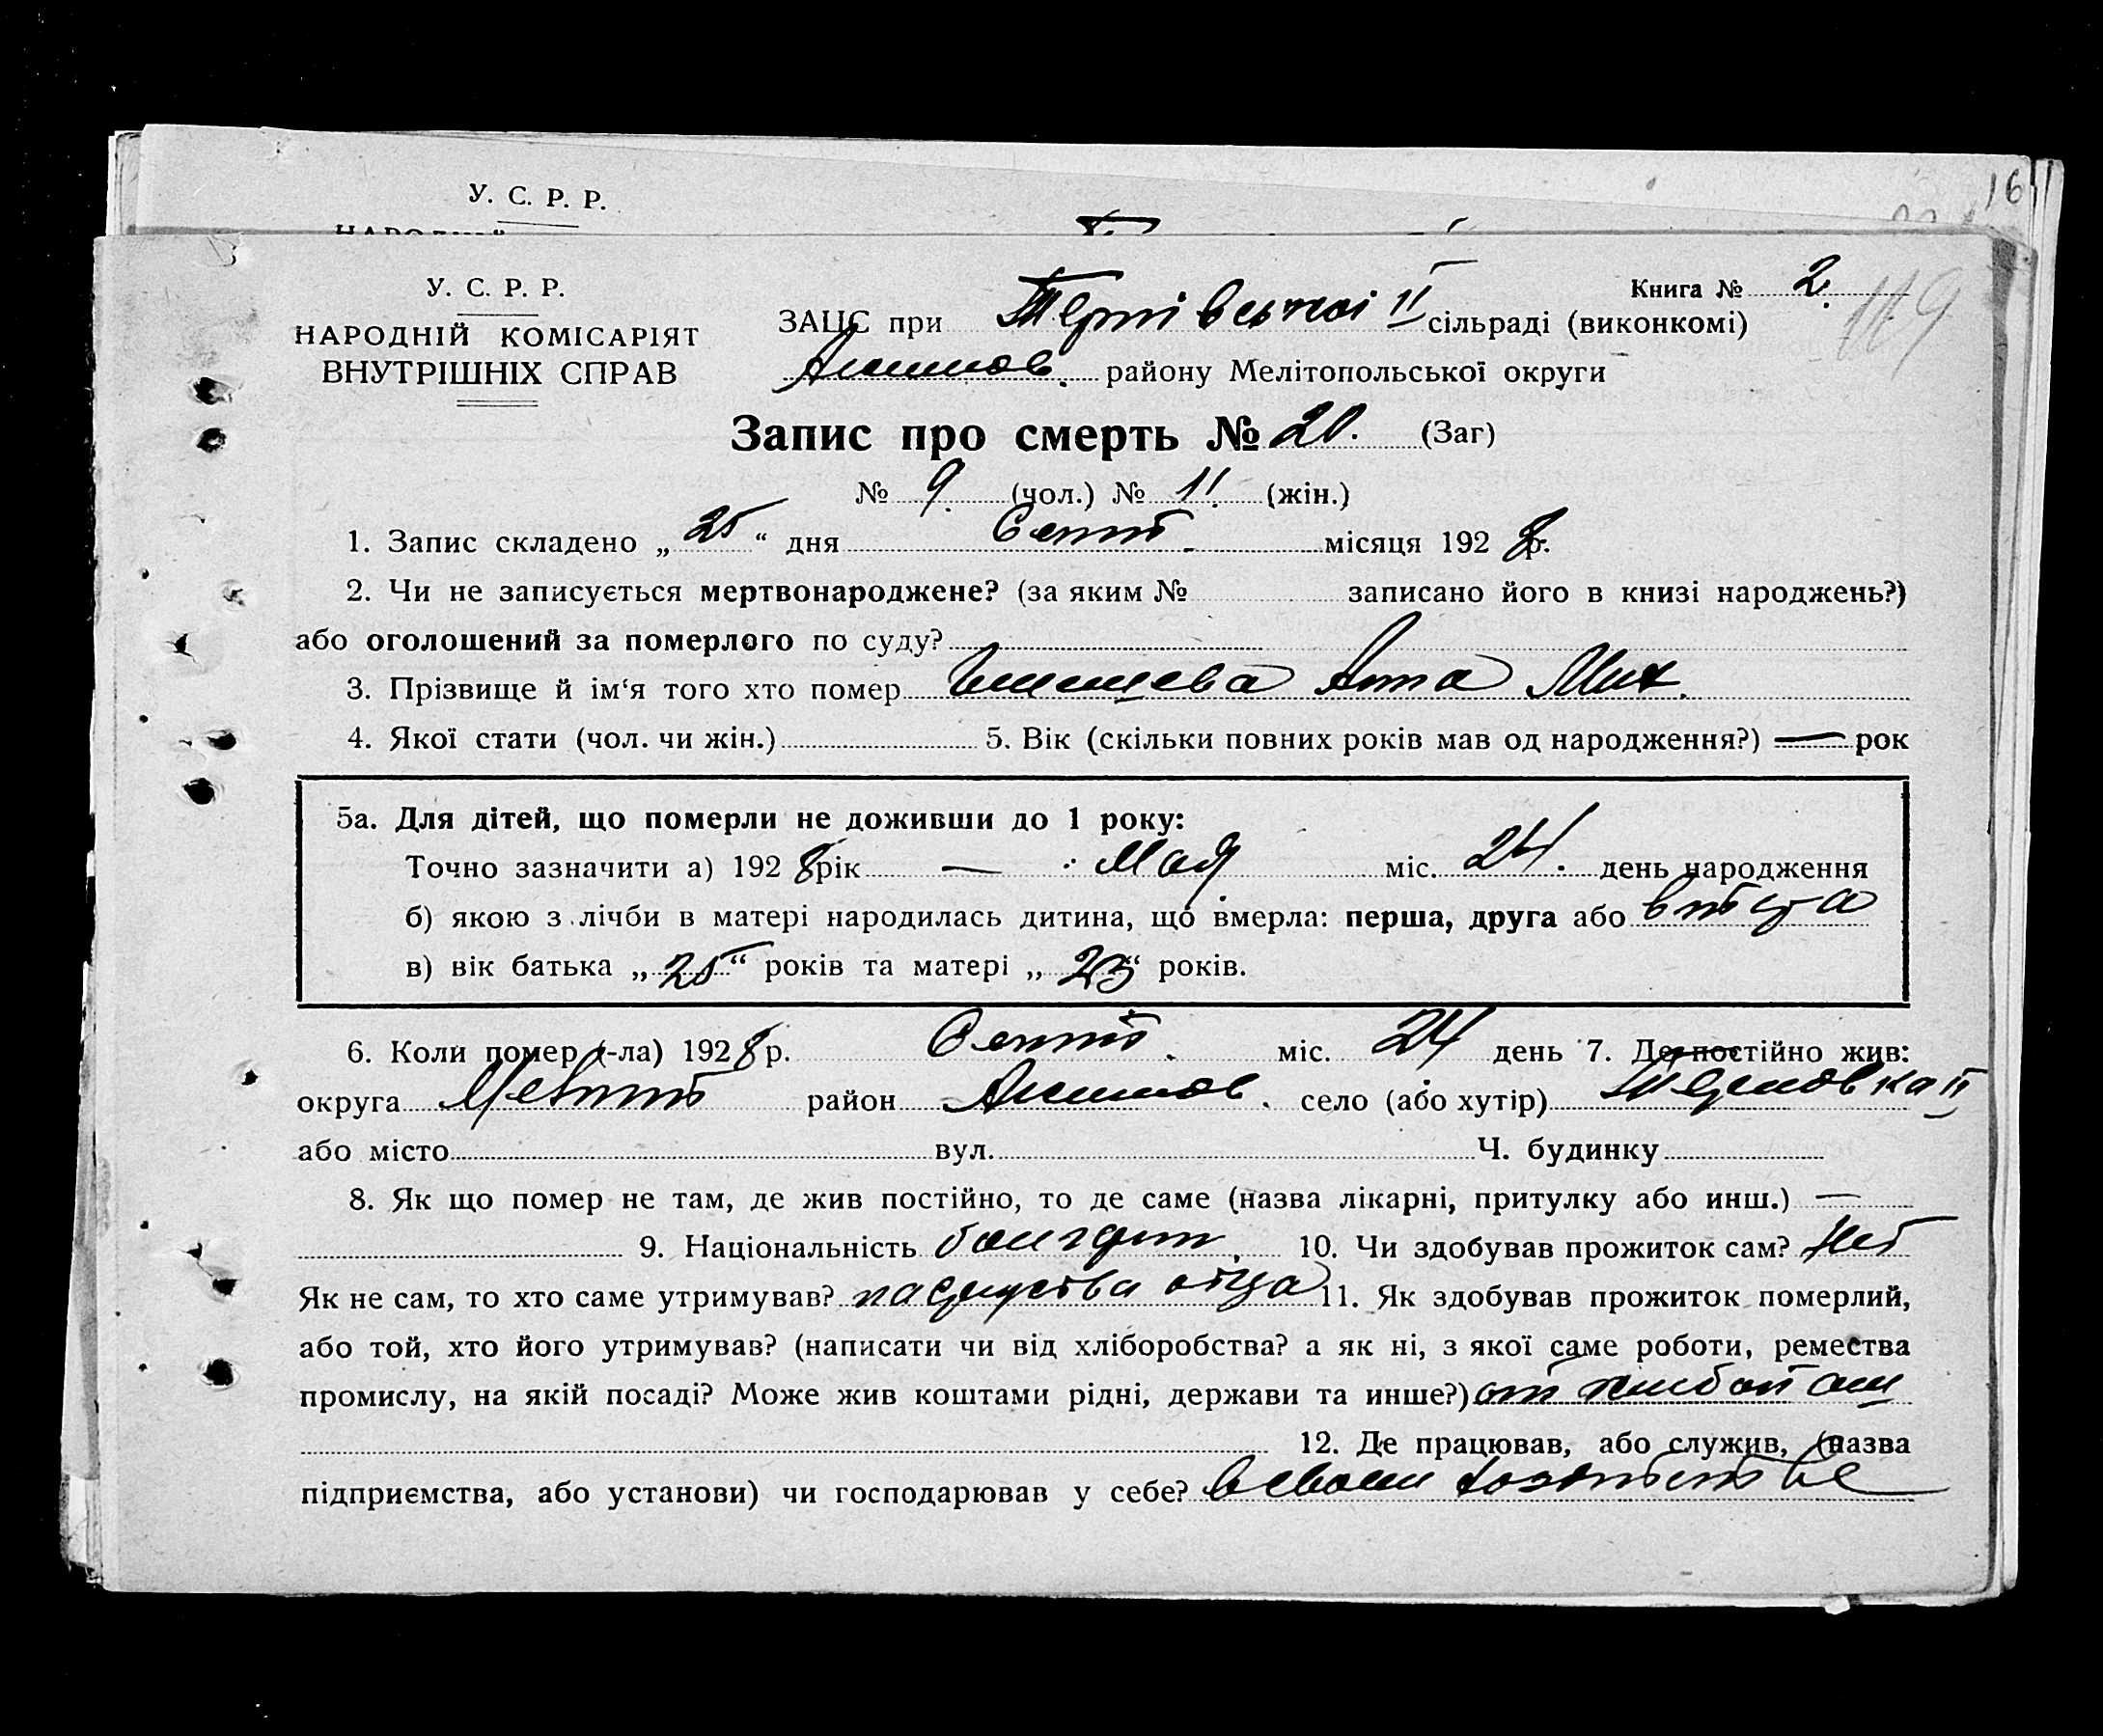 16
У. С. Р. Р.
У. С. Р. Р.
НАРОДНІЙ КОМІСАРІЯТ
ВНУТРІШНІХ СПРАВ
Книга № 2.
119
ЗАЦС при Тернівської II сільраді (виконкомі)
Акимов. району Мелітопольської округи
Запис про смерть № 20. (Заг)
№ 9. (чол.) № 11. (жін.)
1. Запис складено „ 25 “ дня Сент. місяця 192 8 р.
2. Чи не записується мертвонароджене? (за яким № записано його в книзі народжень?)
або оголошений за померлого по суду?
3. Прізвище й ім‘я того хто помер Анна Мих.
4. Якої стати (чол. чи жін.) 5. Вік (скільки повних років мав од народження?) — рок
5а. Для дітей, що померли не доживши до 1 року:
Точно зазначити а) 192 8 рік — Мая міс. 24. день народження
б) якою з лічби в матері народилась дитина, що вмерла: перша, друга або
в) вік батька „ 25 “ років та матері „ 23 “ років.
6. Коли помер (-ла) 192 8 р. Сент. міс. 24 день 7. Де постійно жив:
округа Мелит район Акимов. село (або хутір) Терновка II
або місто вул. Ч. будинку
8. Як що помер не там, де жив постійно, то де саме (назва лікарні, притулку або инш.) —
9. Національність болгарин. 10. Чи здобував прожиток сам? Нет
Як не сам, то хто саме утримував? на средства отца 11. Як здобував прожиток померлий,
або той, хто його утримував? (написати чи від хліборобства? а як ні, з якої саме роботи, ремества
промислу, на якій посаді? Може жив коштами рідні, держави та инше?) от хлебопаш
12. Де працював, або служив, (назва
підприємства, або установи) чи господарював у себе? в своем хозяйстве